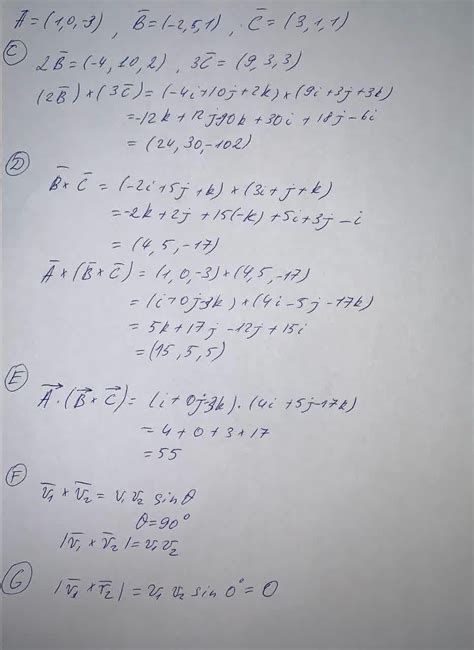 Ā=(1,0,-3) , B̄=(-2,5,1) , C̄=(3,1,1)
C
2B̄=(-4,10,2) , 3C̄=(9,3,3)
(2B̄)×(3C̄)=(-4i+10j+2k)×(9i+3j+3k)
=-12k+12j-90k+30i+18j-6i
=(24,30,-102)
D
B̄×C̄=(-2i+5j+k)×(3i+j+k)
=-2k+2j+15(-k)+5i+3j-i
=(4,5,-17)
Ā×(B̄×C̄)=(1,0,-3)×(4,5,-17)
=(i+0j-3k)×(4i-5j-17k)
=5k+17j-12j+15i
=(15,5,5)
E
A⃗·(B⃗×C⃗)=(i+0j-3k)·(4i+5j-17k)
=4+0+3×17
=55
F
v̄₁×v̄₂=v₁v₂ sinθ
θ=90°
|v̄₁×v̄₂|=v₁v₂
G
|v̄₁×v̄₂|=v₁ v₂ sin 0°=0